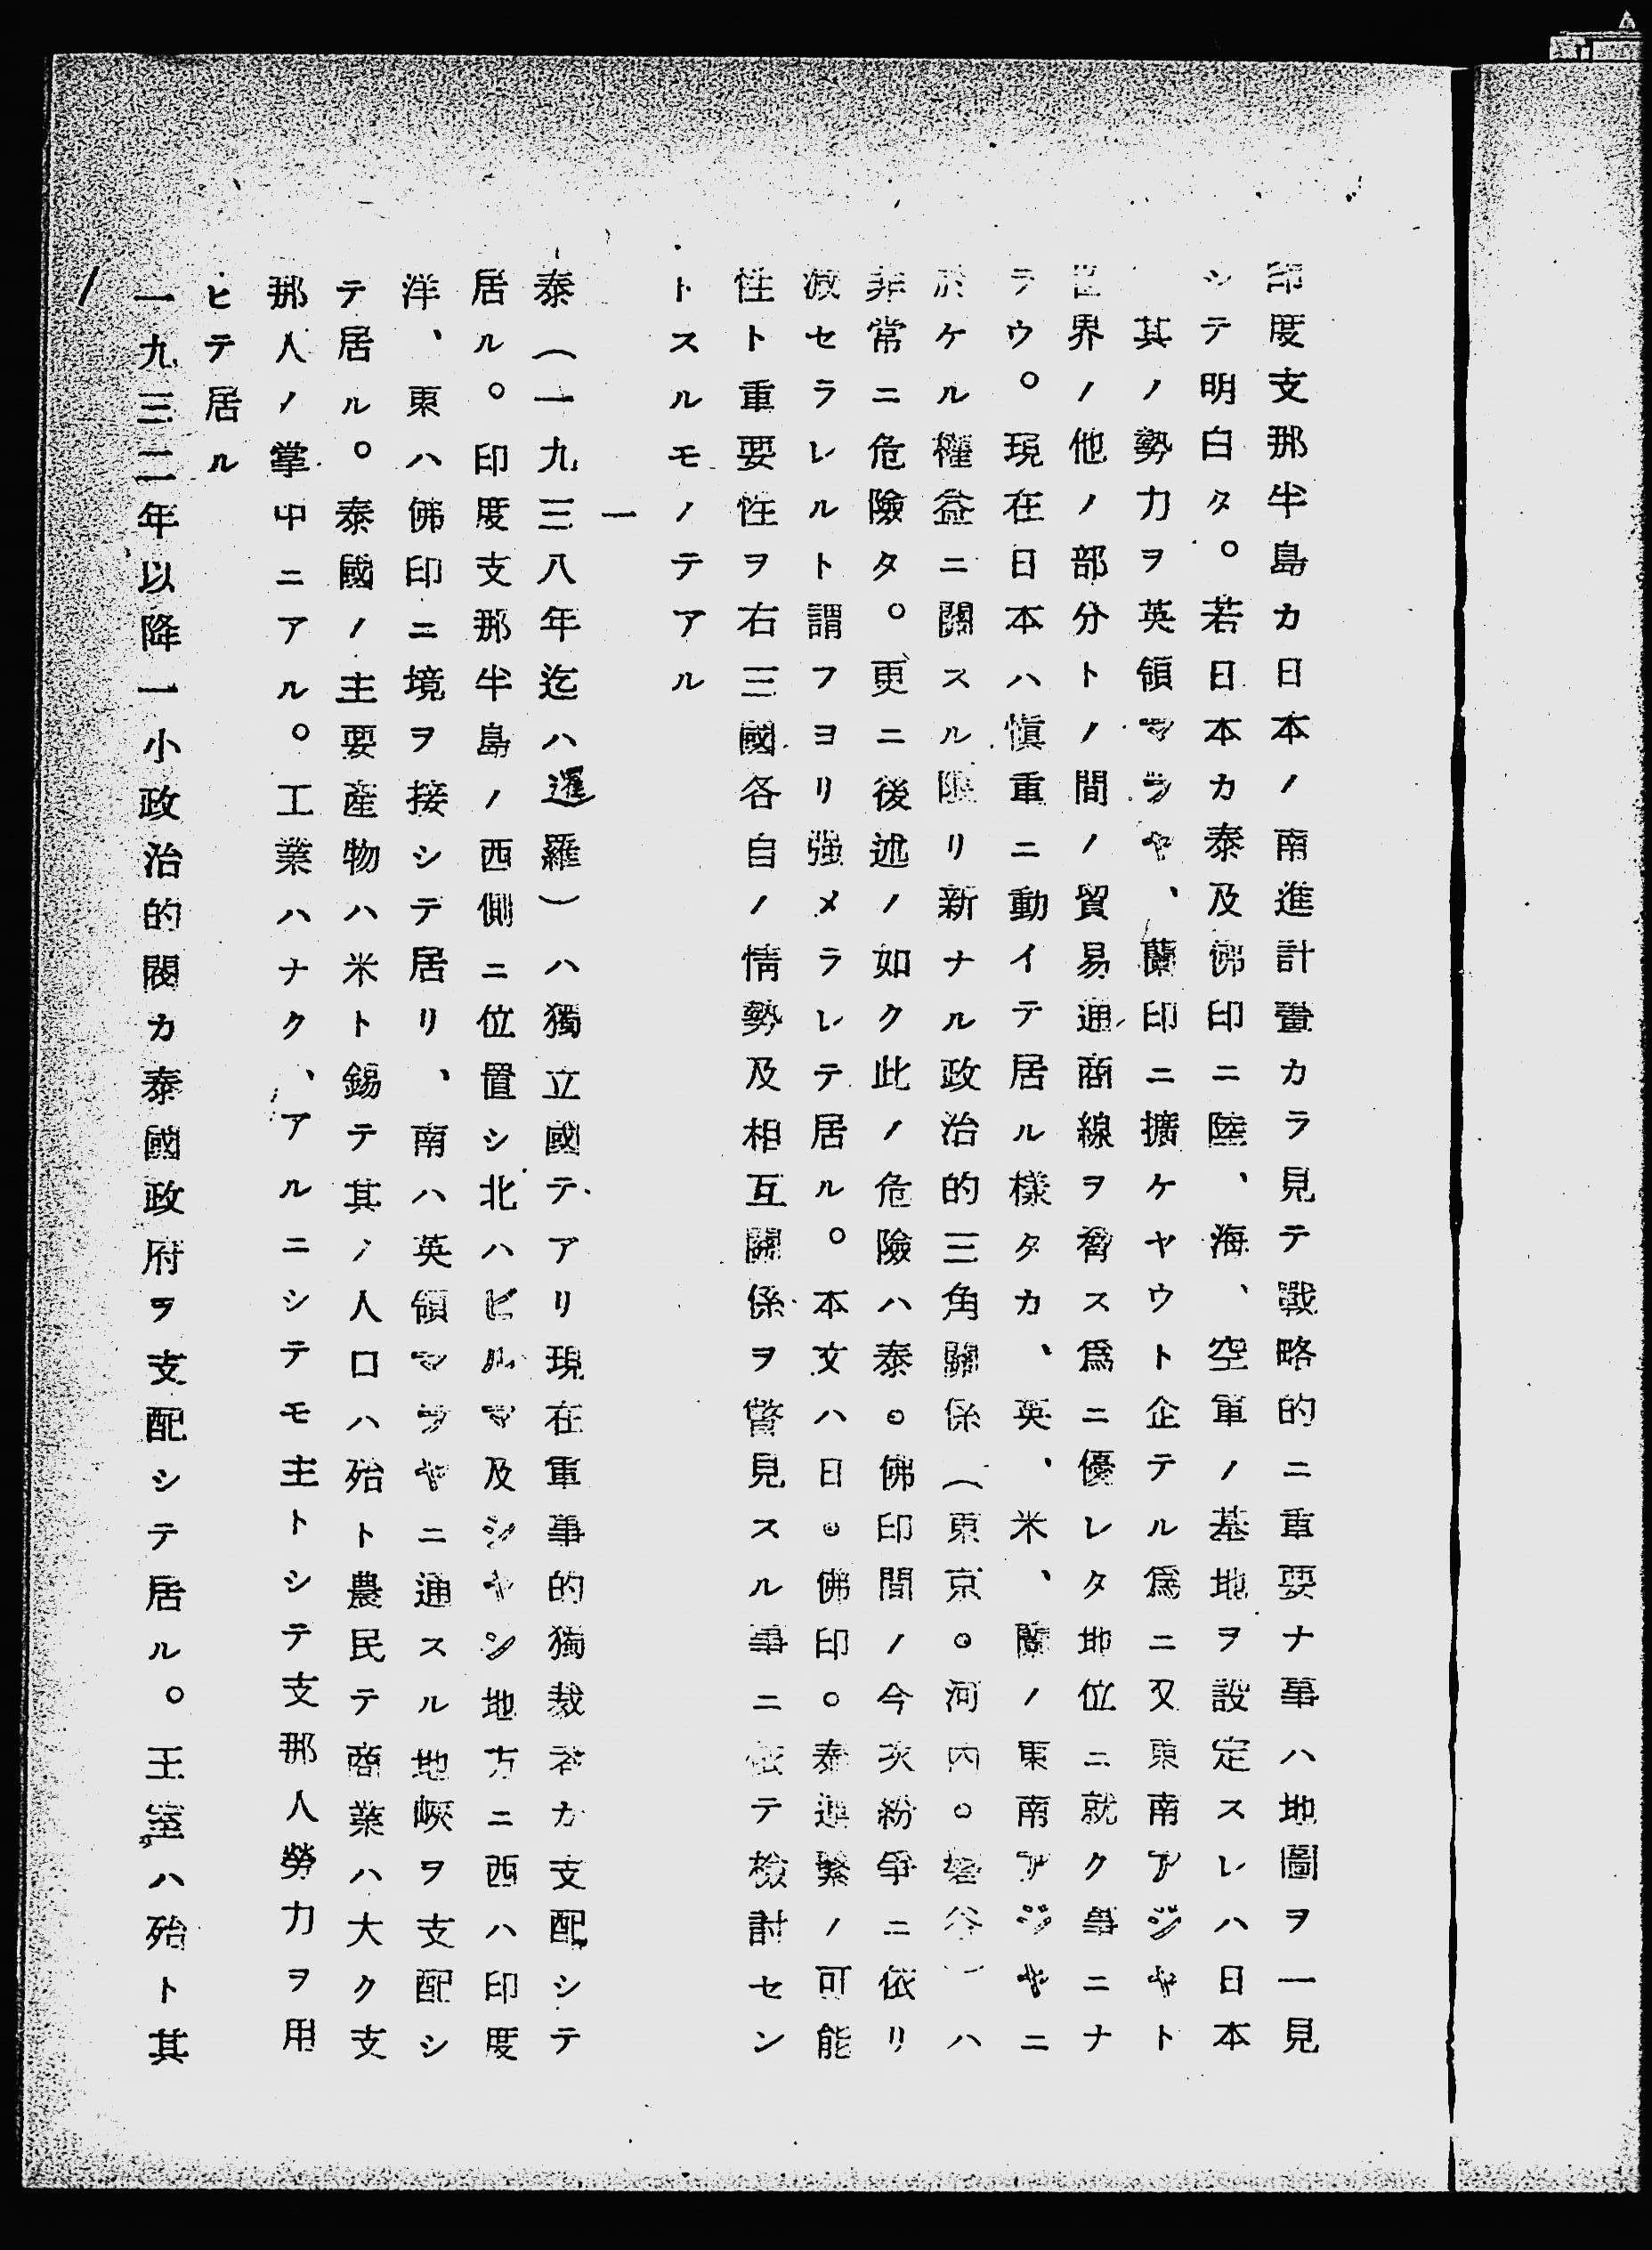 印度支那半島カ日本ノ南進計畫カラ見テ戰略的ニ重要ナ事ハ地圖ヲ一見
シテ明白タ。若日本カ泰及佛印ニ陸、海、空軍ノ基地ヲ設定スレハ日本
其ノ勢力ヲ英領マラヤ、蘭印ニ擴ケヤウト企テル爲ニ又東南アジヤト
世界ノ他ノ部分トノ間ノ貿易通商線ヲ脅ス爲ニ優レタ地位ニ就ク事ニナ
ラウ。現在日本ハ愼重ニ動イテ居ル樣タカ、英、米、蘭ノ東南アジヤニ
於ケル權益ニ關スル限リ新ナル政治的三角關係(東京。河内。盤谷)ハ
非常ニ危險タ。更ニ後述ノ如ク此ノ危險ハ泰。佛印間ノ今次紛爭ニ依リ
激セラレルト謂フヨリ强メラレテ居ル。本文ハ日。佛印。泰連繫ノ可能
性ト重要性ヲ右三國各自ノ情勢及相互關係ヲ瞥見スル事ニ依テ檢討セン
トスルモノテアル
一
泰(一九三八年迄ハ暹羅)ハ獨立國テアリ現在軍事的獨裁者カ支配シテ
居ル。印度支那半島ノ西側ニ位置シ北ハビルマ及シヤン地方ニ西ハ印度
洋、東ハ佛印ニ境ヲ接シテ居リ、南ハ英領マラヤニ通スル地峽ヲ支配シ
テ居ル。泰國ノ主要産物ハ米ト錫テ其ノ人口ハ殆ト農民テ商業ハ大ク支
那人ノ掌中ニアル。工業ハナク、アルニシテモ主トシテ支那人勞力ヲ用
ヒテ居ル
一九三二年以降一小政治的閥カ泰國政府ヲ支配シテ居ル。王室ハ殆ト其